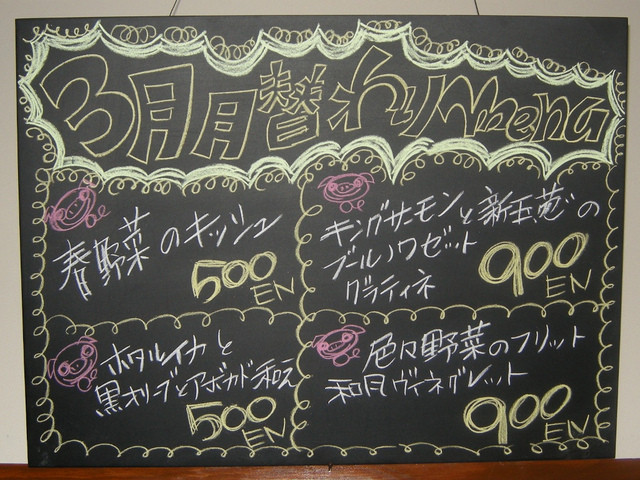 3月月替わりmenu
春野菜のキッシュ
500
EN
キングサーモンと新玉葱の
ブールノワゼット
グラティネ
900
EN
ホタルイカと
黒オリーブとアボカド和え
500
EN
色々野菜のフリット
和風ヴィネグレット
900
EN